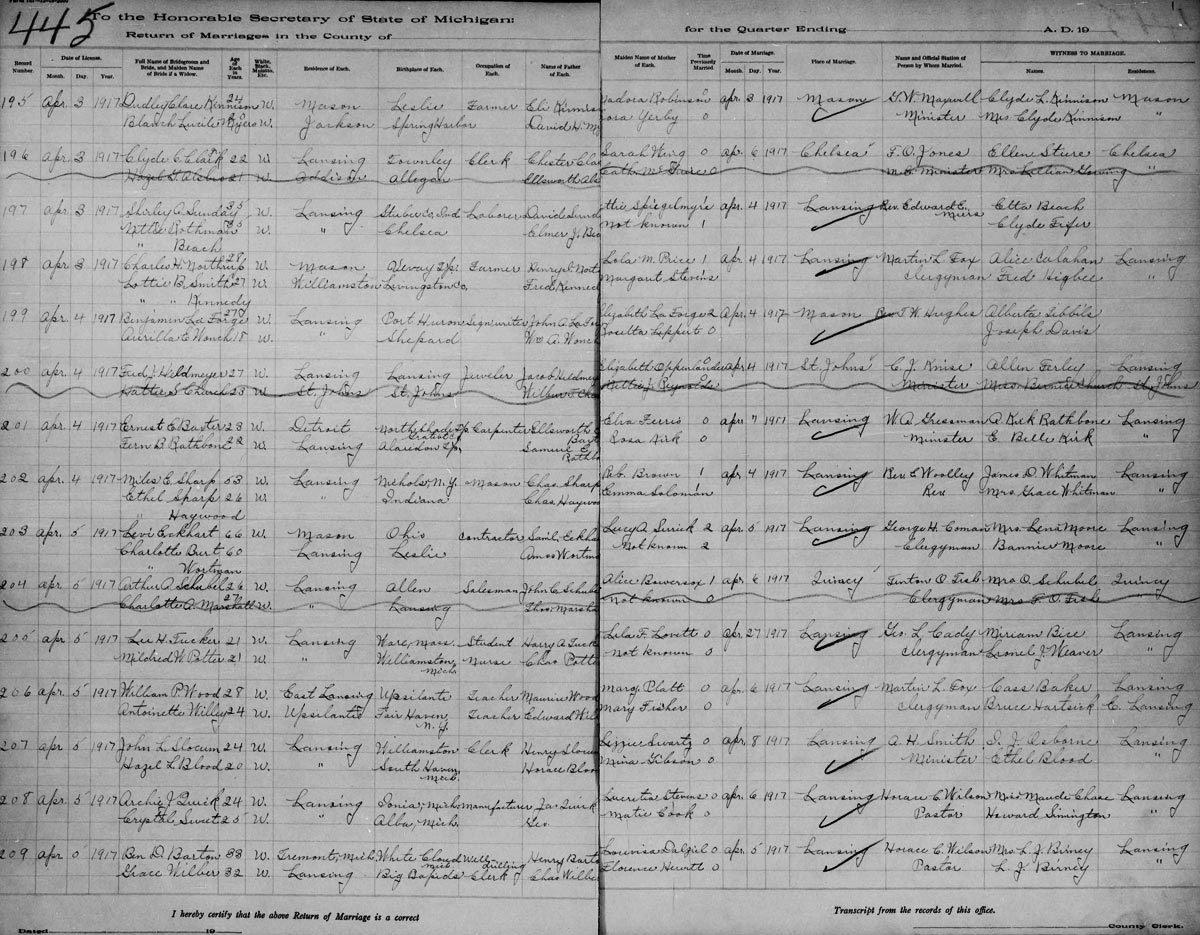 445
To the Honorable Secretary of State of Michigan:
Return of Marriages in the County of
for the Quarter Ending A. D. 19
Record Number. Date of License. Month. Day. Year. Full Name of Bridegroom and Bride, and Maiden Name of Bride if a Widow. Age of Each in Years. White, Black, Mulatto, Etc. Residence of Each. Birthplace of Each. Occupation of Each. Name of Father of Each.
Maiden Name of Mother of Each. Time Previously Married. Date of Marriage. Month. Day. Year. Place of Marriage. Name and Official Station of Person by Whom Married. WITNESS TO MARRIAGE. Names. Residences.
195 Apr. 3 1917 Dudley Clare Kinnison 24 W. Mason Leslie Farmer Eli Kinnison Robinson 0 Apr. 3 1917 Mason G. W. Maxwell Clyde L. Kinnison Mason
Blanch Lucile W. Jackson Spring Harbor David H. Yerby 0 Minister Mrs Clyde Kinnison "
196 Apr. 3 1917 Clyde C Clark 22 W. Lansing Townley Clerk Chester Clark Sarah Wing 0 Apr. 6 1917 Chelsea F. O. Jones Ellen Chelsea
Hazel 21 W. Addison Allegan Ellsworth 0 M.E. Minister Mrs Lillian "
197 Apr. 3 1917 Shirley A. Sunday 35 W. Lansing Steuben Co, Ind Laborer David Apr. 4 1917 Lansing Rev. Edward E. Miers Etta Beach
Rothman W. " Chelsea Elmer J. Not known 1 Clyde Fifer
" Beach
198 Apr. 3 1917 Charles H. Northrup 28 W. Mason Vevay Tp. Farmer Henry Lola M. Price 1 Apr. 4 1917 Lansing Martin L. Fox Alice Calahan Lansing
Lottie B. Smith 27 W. Williamston Livingston Co, Fred Margaret Stevens Clergyman Fred Higbee "
" " Kennedy
199 Apr. 4 1917 Benjamin La Forge W. Lansing Port Huron Signwriter John A. Elizabeth La Forge 2 Apr. 4 1917 Mason Rev. J. W. Hughes Alberta Sibbils
Aurilla E Wonch 18 W. " Shepard Wm A. Wonch Rosetta Leppert 0 Joseph Davis
200 Apr. 4 1917 Fred J. Heldmeyer 27 W. Lansing Lansing Jeweler Jacob Elizabeth 0 Apr 4 1917 St. Johns C. J. Kruse Allen Ferley Lansing
Hattie S Church 23 W. St. Johns St. Johns Wilbur Reynolds Minister Church St. Johns
201 Apr. 4 1917 Ernest C Baxter 28 W. North Shade Tp Gratiot Co Carpenter Ellsworth Ferris 0 Apr 7 1917 Lansing W. A. Gressman A. Kirk Rathbone Lansing
Detroit
Fern B. Rathbone 22 W. Lansing Alaiedon Tp. Samuel Rosa Kirk 0 Minister E. Belle Kirk "
202 Apr. 4 1917 Miles E. Sharp 53 W. Lansing Nichols, N.Y. Mason Chas. Sharp Brown 1 Apr 4 1917 Lansing Rev. E Woolley James D. Whitman Lansing
Ethel Sharp 26 W. " Indiana Chas. Emma Soloman Rev Mrs. Grace Whitman "
" Haywood
203 Apr. 5 1917 Levi Eckhart 66 W. Mason Ohio Contractor Lucy A. 2 Apr. 5 1917 Lansing George H. Coman Mrs. Lena Moore Lansing
Charlotte Burt 60 Lansing Leslie Amos Not known 2 Clergyman Bannier Moore "
" Wortman
204 Apr. 5 1917 Arthur A Schubel 26 W. Lansing Allen Salesman John C. Alice Bowersox 1 Apr. 6 1917 Quincy Finton O Fish Mrs O. Schubel Quincy
Charlotte A. Marshall 27 W. " Lansing Thos. Not known 0 Clergyman Mrs F. O. Fish
205 Apr. 5 1917 Lee H. Tucker 21 W. Lansing Ware, Mass. Student Harry A. Lila F. Lovett 0 Apr. 27 1917 Lansing Geo. L. Cady Miriam Bice Lansing
Mildred W. Potter 21 W " Williamston, Mich Nurse Chas Not known 0 Clergyman Lionel J Weaver "
206 Apr. 5 1917 William P. Wood 28 W. East Lansing Ypsilanti Teacher Maurice Wood Mary Platt 0 Apr. 6 1917 Lansing Martin L Fox Cass Baker Lansing
Antoinette Willey 24 W. Ypsilanti Fair Haven, N.Y. Teacher Edward Mary Fisher 0 Clergyman Bruce Hartsick E. Lansing
207 Apr 5 1917 John L. Slocum 24 W. Lansing Williamston Clerk Henry Lizzie Swartz 0 Apr. 8 1917 Lansing A. H. Smith S. J. Osborne Lansing
Hazel L Blood 20 W. " South Haven, Mich. Horace Mina Gibson 0 Minister Ethel Blood "
208 Apr. 5 1917 Archie J. Quick 24 W. Lansing Ionia, Mich. Manufacturer Jas Quick Lucretia Stevens 0 Apr. 6 1917 Lansing Horace C Wilson Miss Maude Chase Lansing
Crystal Sweet 25 W. " Alba, Mich. Geo Matie Cook 0 Pastor Howard Simington "
209 Apr. 5 1917 Ben D. Barton 33 W. Fremont, Mich. White Cloud Mich Well drilling Henry Dalziel 0 Apr. 5 1917 Lansing Horace C. Wilson Mrs. L. J. Birney Lansing
Grace Wilber 32 W. Lansing Big Rapids Clerk Chas Florence Hewitt 0 Pastor L. J. Birney "
I hereby certify that the above Return of Marriage is a correct
Transcript from the records of this office.
Dated 19
County Clerk.